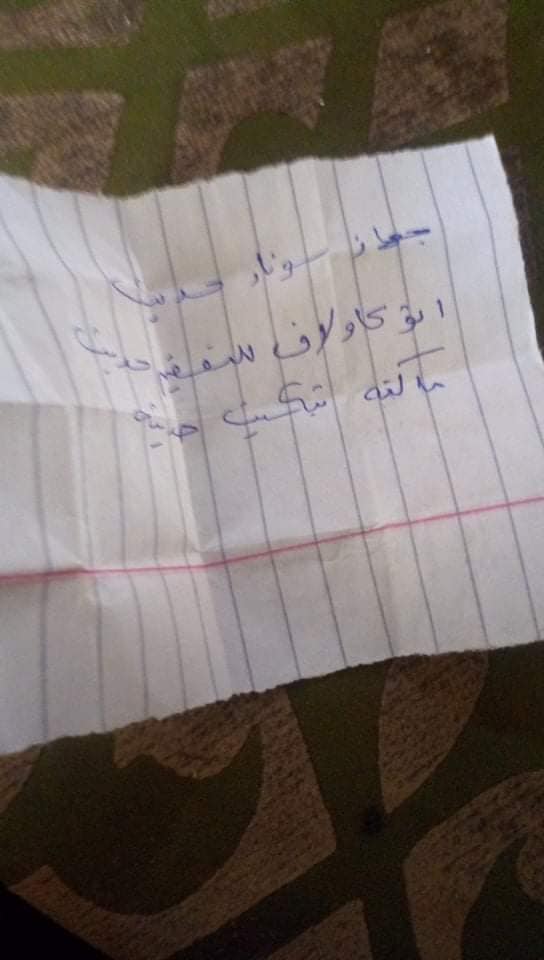 جهاز سونار حديث
اتو كاولاف للتعقيم حديث
ماكنه تبكيت حديثه